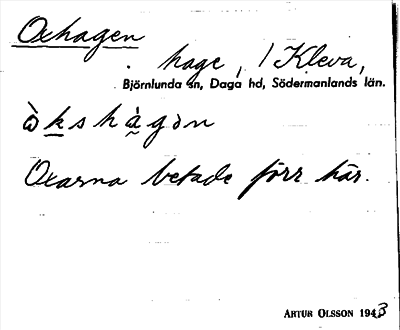 Oxhagen
. hage, / Kleva,
Björnlunda sn, Daga hd, Södermanlands län.
Oxarna betade förr här.
ARTUR OLSSON 1943